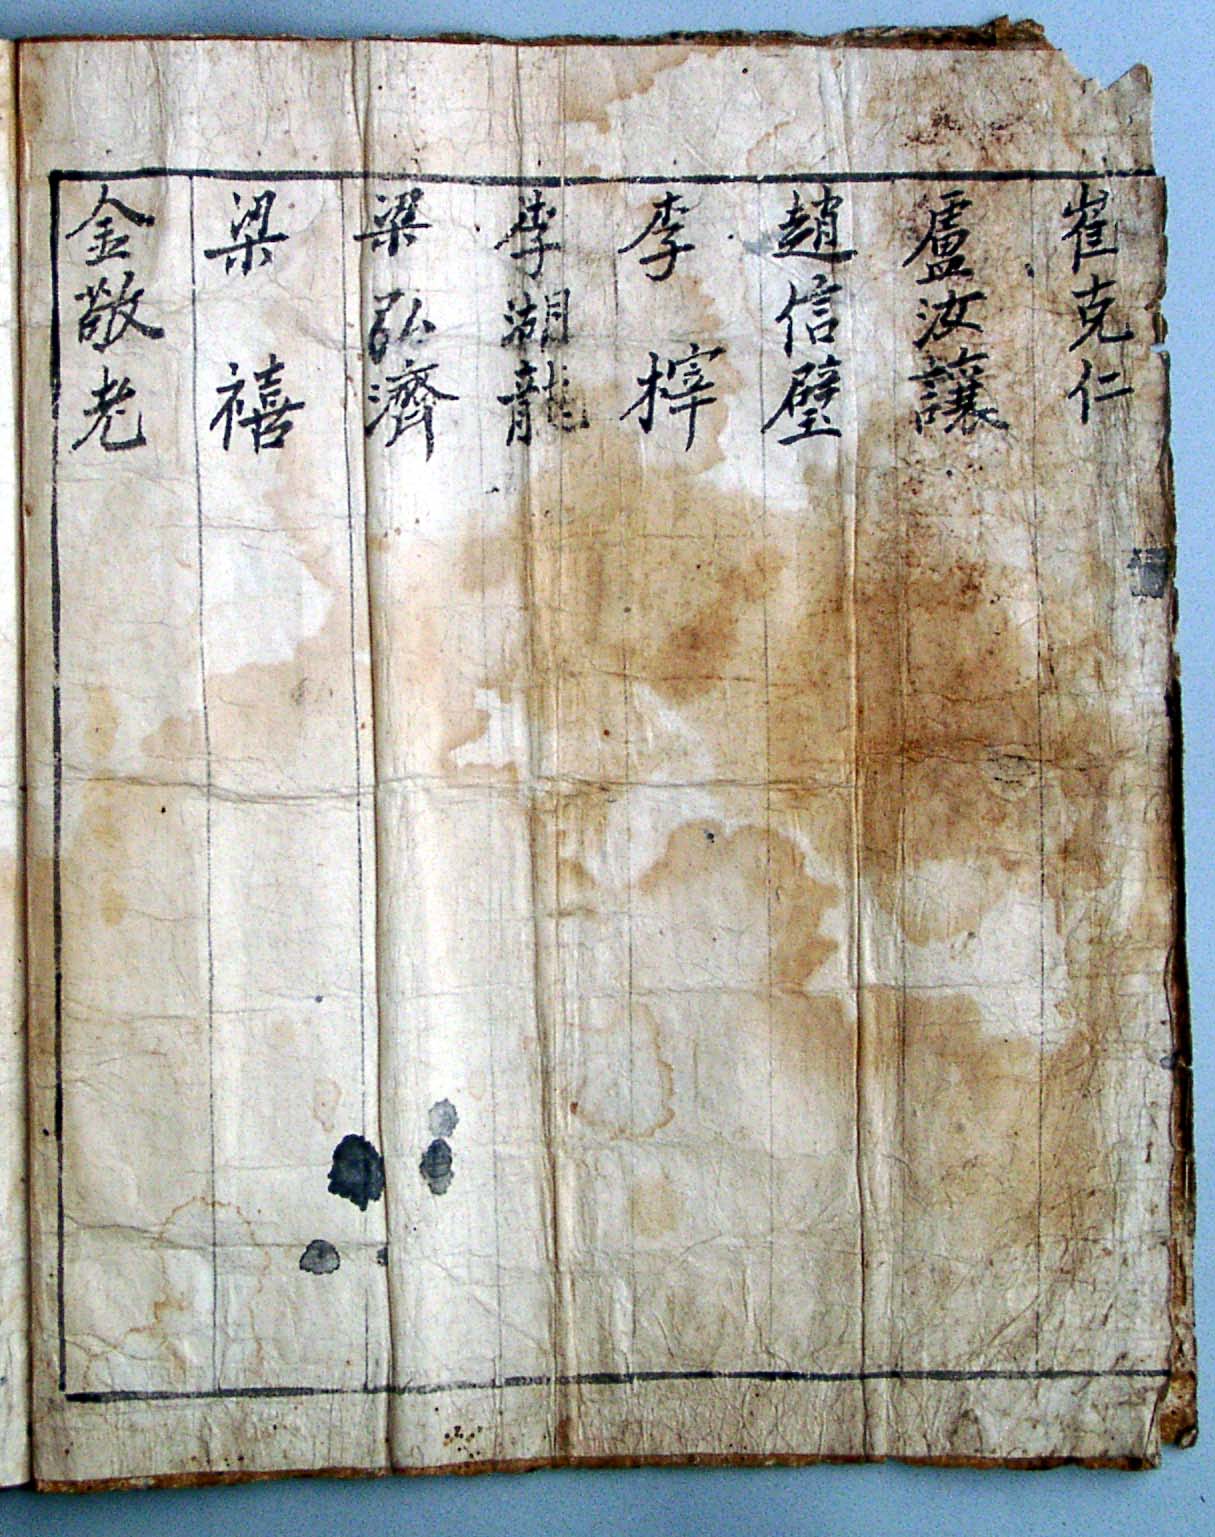 崔克仁
盧汝讓
趙信璧
李梓
李湖龍
梁弘濟
梁禧
金敬老